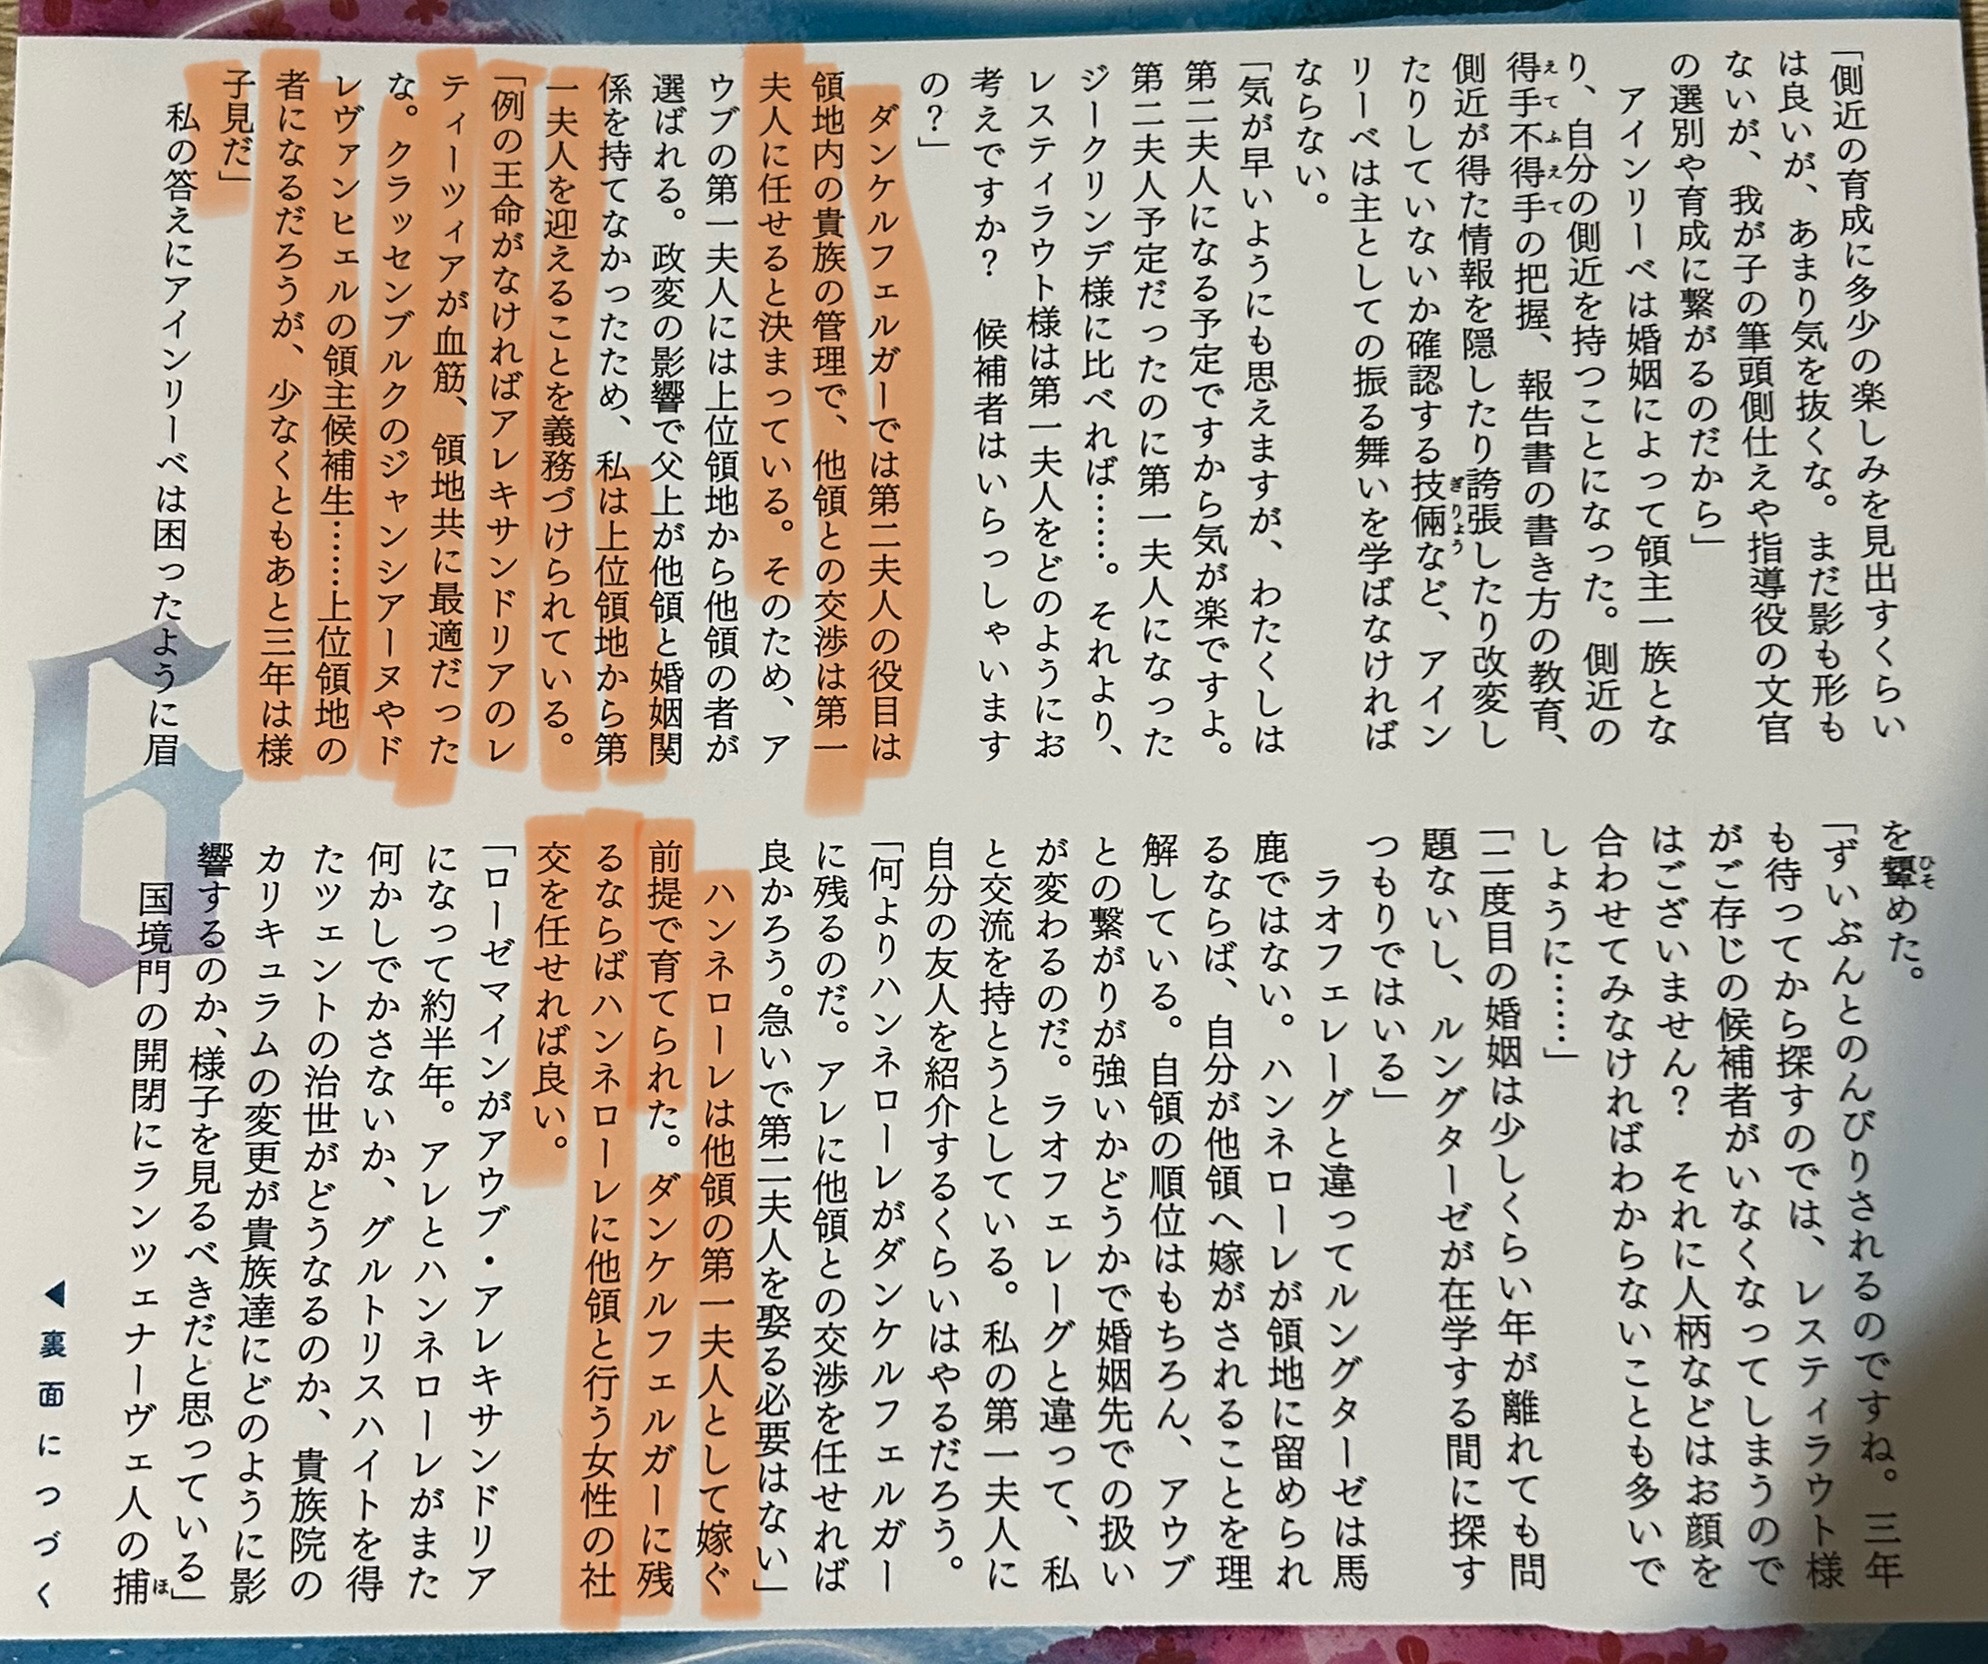 「側近の育成に多少の楽しみを見出すくらい
は良いが、あまり気を抜くな。まだ影も形も
ないが、我が子の筆頭側仕えや指導役の文官
の選別や育成に繋がるのだから」
アインリーベは婚姻によって領主一族とな
り、自分の側近を持つことになった。側近の
得手不得手の把握、報告書の書き方の教育、
側近が得た情報を隠したり誇張したり改変し
たりしていないか確認する技倆など、アイン
リーベは主としての振る舞いを学ばなければ
ならない。
「気が早いようにも思えますが、わたくしは
第二夫人になる予定ですから気が楽ですよ。
第二夫人予定だったのに第一夫人になった
ジークリンデ様に比べれば……。それより、
レスティラウト様は第一夫人をどのようにお
考えですか？　候補者はいらっしゃいます
の？」
ダンケルフェルガーでは第二夫人の役目は
領地内の貴族の管理で、他領との交渉は第一
夫人に任せると決まっている。そのため、ア
ウブの第一夫人には上位領地から他領の者が
選ばれる。政変の影響で父上が他領と婚姻関
係を持てなかったため、私は上位領地から第
一夫人を迎えることを義務づけられている。
「例の王命がなければアレキサンドリアのレ
ティーツィアが血筋、領地共に最適だった
な。クラッセンブルクのジャンシアーヌやド
レヴァンヒェルの領主候補生……上位領地の
者になるだろうが、少なくともあと三年は様
子見だ」
私の答えにアインリーベは困ったように眉
を顰めた。
「ずいぶんとのんびりされるのですね。三年
も待ってから探すのでは、レスティラウト様
がご存じの候補者がいなくなってしまうので
はございません？　それに人柄などはお顔を
合わせてみなければわからないことも多いで
しょうに……」
「二度目の婚姻は少しくらい年が離れても問
題ないし、ルングターゼが在学する間に探す
つもりではいる」
ラオフェレーグと違ってルングターゼは馬
鹿ではない。ハンネローレが領地に留められ
るならば、自分が他領へ嫁がされることを理
解している。自領の順位はもちろん、アウブ
との繋がりが強いかどうかで婚姻先での扱い
が変わるのだ。ラオフェレーグと違って、私
と交流を持とうとしている。私の第一夫人に
自分の友人を紹介するくらいはやるだろう。
「何よりハンネローレがダンケルフェルガー
に残るのだ。アレに他領との交渉を任せれば
良かろう。急いで第二夫人を娶る必要はない」
ハンネローレは他領の第一夫人として嫁ぐ
前提で育てられた。ダンケルフェルガーに残
るならばハンネローレに他領と行う女性の社
交を任せれば良い。
「ローゼマインがアウブ・アレキサンドリア
になって約半年。アレとハンネローレがまた
何かしでかさないか、グルトリスハイトを得
たツェントの治世がどうなるのか、貴族院の
カリキュラムの変更が貴族達にどのように影
響するのか、様子を見るべきだと思っている」
国境門の開閉にランツェナーヴェ人の捕
6
◀裏面につづく